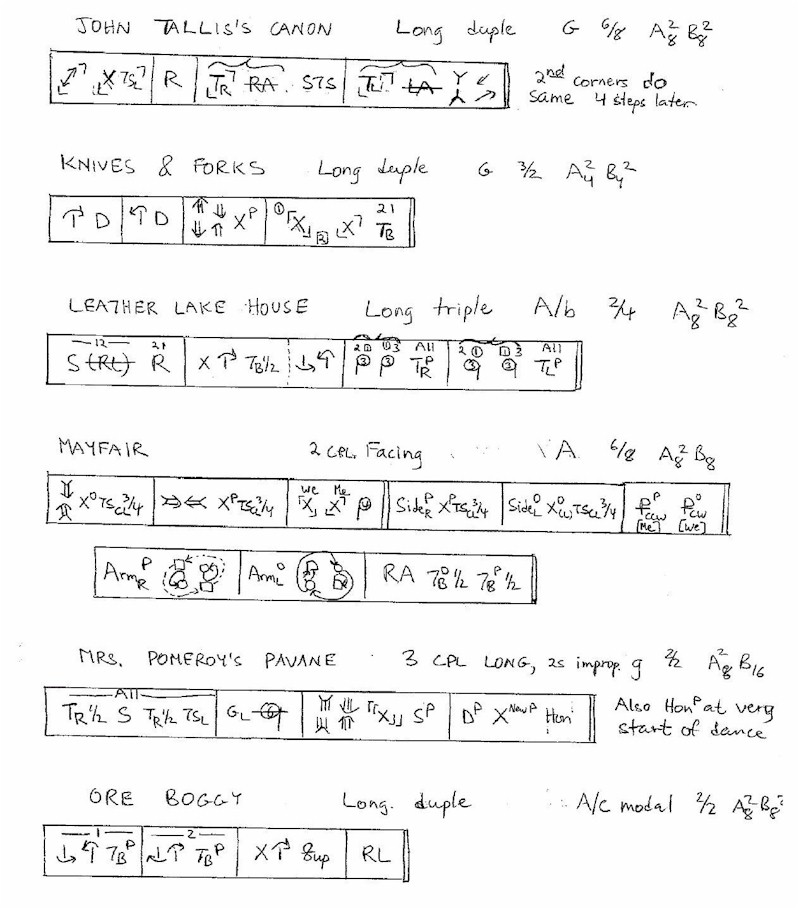 JOHN TALLIS'S CANON Long duple G 6/8 A²₈ B²₈
X TSL R TR RA STS TL LA
2nd corners do
same 4 steps later
KNIVES & FORKS Long duple G 3/2 A²₄ B₄²
D D Xᴾ ① X 2 X 21 TB
LEATHER LAKE HOUSE Long triple A/b 2/4 A₈² B₈²
12 21 2 1 1 3 All 2 1 1 3 All
S (RL) R X TB1/2 3 3 TRᴾ 3 3 TLᴾ
MAYFAIR 2 CPL Facing A 6/8 A₈² B₈
Xᴼ TSCL 3/4 Xᴾ TSCL 3/4 We X Me X SideRᴾ Xᴾ TSCL 3/4 SideLᴼ Xᴼ(L) TSCL 3/4 P CCW [Me] O CW [We]
ArmRᴾ ArmLᴼ RA TBᴼ 1/2 TBᴾ 1/2
MRS. POMEROY'S PAVANE 3 CPL LONG, 2s improp. g 2/2 A₈² B₁₆
All
TR1/2 S TR1/2 TSL GL X Sᴾ Dᴾ X New P Hon
Also Honᴾ at very
start of dance
ORE BOGGY Long duple A/C modal 2/2 A₈² B₈²
1 2
TBᴾ TBᴾ X 8up RL